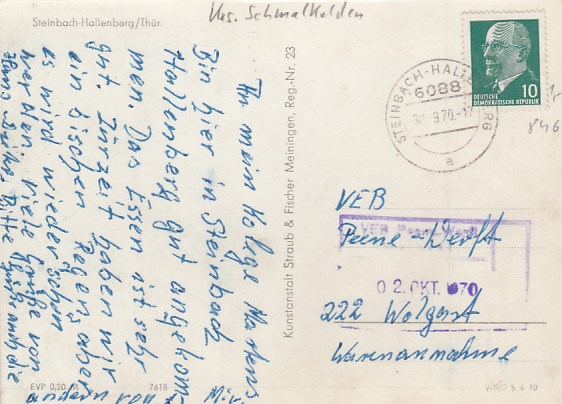 Krs. Schmalkalden
Steinbach-Hallenberg/Thür.
An mein Kolge Martens
Bin hier in Steinbach
Hallenberg gut angekom-
men. Das Essen ist sehr
gut. Zurzeit haben wir
ein bischen Regen aber
es wird wieder schön
werden viele Grüße von
Bitte Grüß auch die
andern von
Kunstanstalt Straub & Fischer Meiningen, Reg.-Nr. 23
DEUTSCHE
DEMOKRATISCHE REPUBLIK
10
STEINBACH-HALLENBERG
6088
9.70.-17
a
1,-
846
VEB
Peene-Werft
VEB Peene-Werft
02. OKT. 1970
222 Wolgast
Warenannahme
EVP 0,20 M
7618
V/11/9 S 4 70